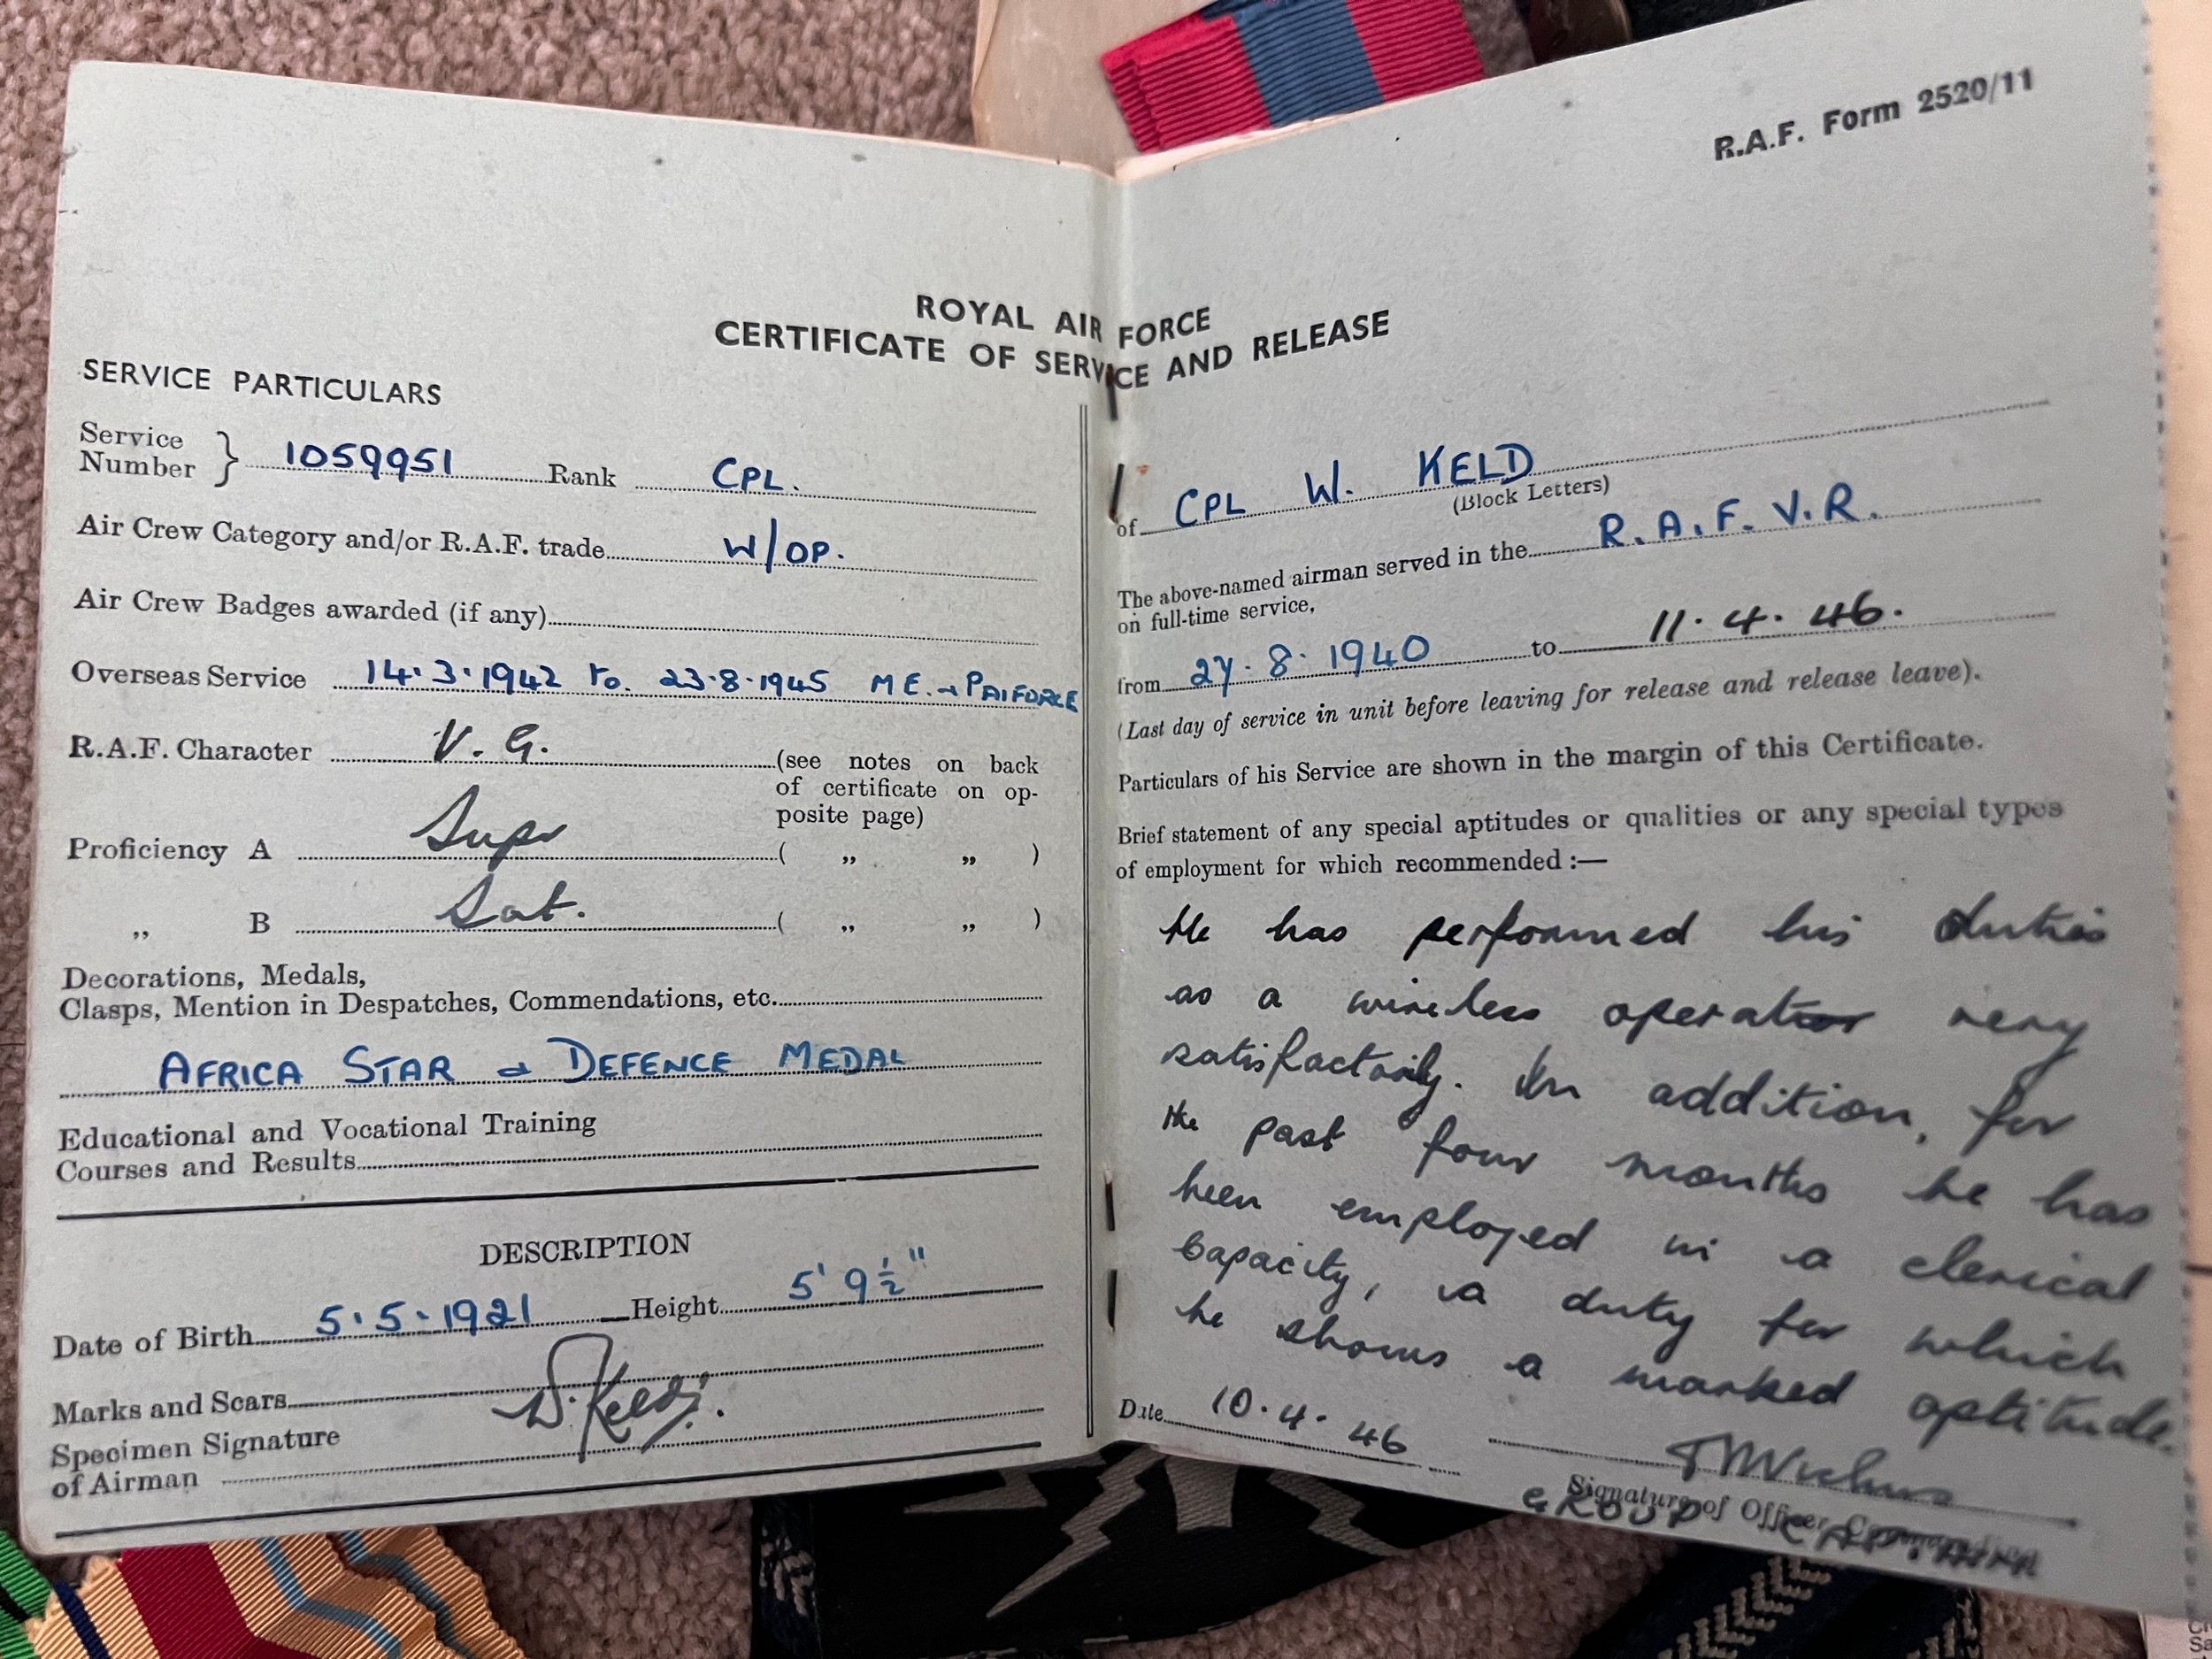 R.A.F. Form 2520/11
ROYAL AIR FORCE
CERTIFICATE OF SERVICE AND RELEASE
SERVICE PARTICULARS
Service Number } 1059951 Rank CPL.
Air Crew Category and/or R.A.F. trade W/OP.
Air Crew Badges awarded (if any)
Overseas Service 14.3.1942 to. 23.8.1945 M.E. & PAIFORCE
R.A.F. Character V. G. (see notes on back
of certificate on op-
posite page)
Proficiency A Supr ( ,, ,, )
,, B Sat. ( ,, ,, )
Decorations, Medals,
Clasps, Mention in Despatches, Commendations, etc.
AFRICA STAR & DEFENCE MEDAL
Educational and Vocational Training
Courses and Results
DESCRIPTION
Date of Birth 5.5.1921 Height 5' 9½"
Marks and Scars
Specimen Signature
of Airman W. Keld.
of CPL W. KELD
(Block Letters)
The above-named airman served in the R.A.F.V.R.
on full-time service,
from 27.8.1940 to 11.4.46.
(Last day of service in unit before leaving for release and release leave).
Particulars of his Service are shown in the margin of this Certificate.
Brief statement of any special aptitudes or qualities or any special types
of employment for which recommended :—
He has performed his duties
as a wireless operator very
satisfactorily. In addition, for
the past four months he has
been employed in a clerical
capacity, a duty for which
he shows a marked aptitude.
Date 10.4.46
Signature of Officer Commanding
GROUP CAPTAIN